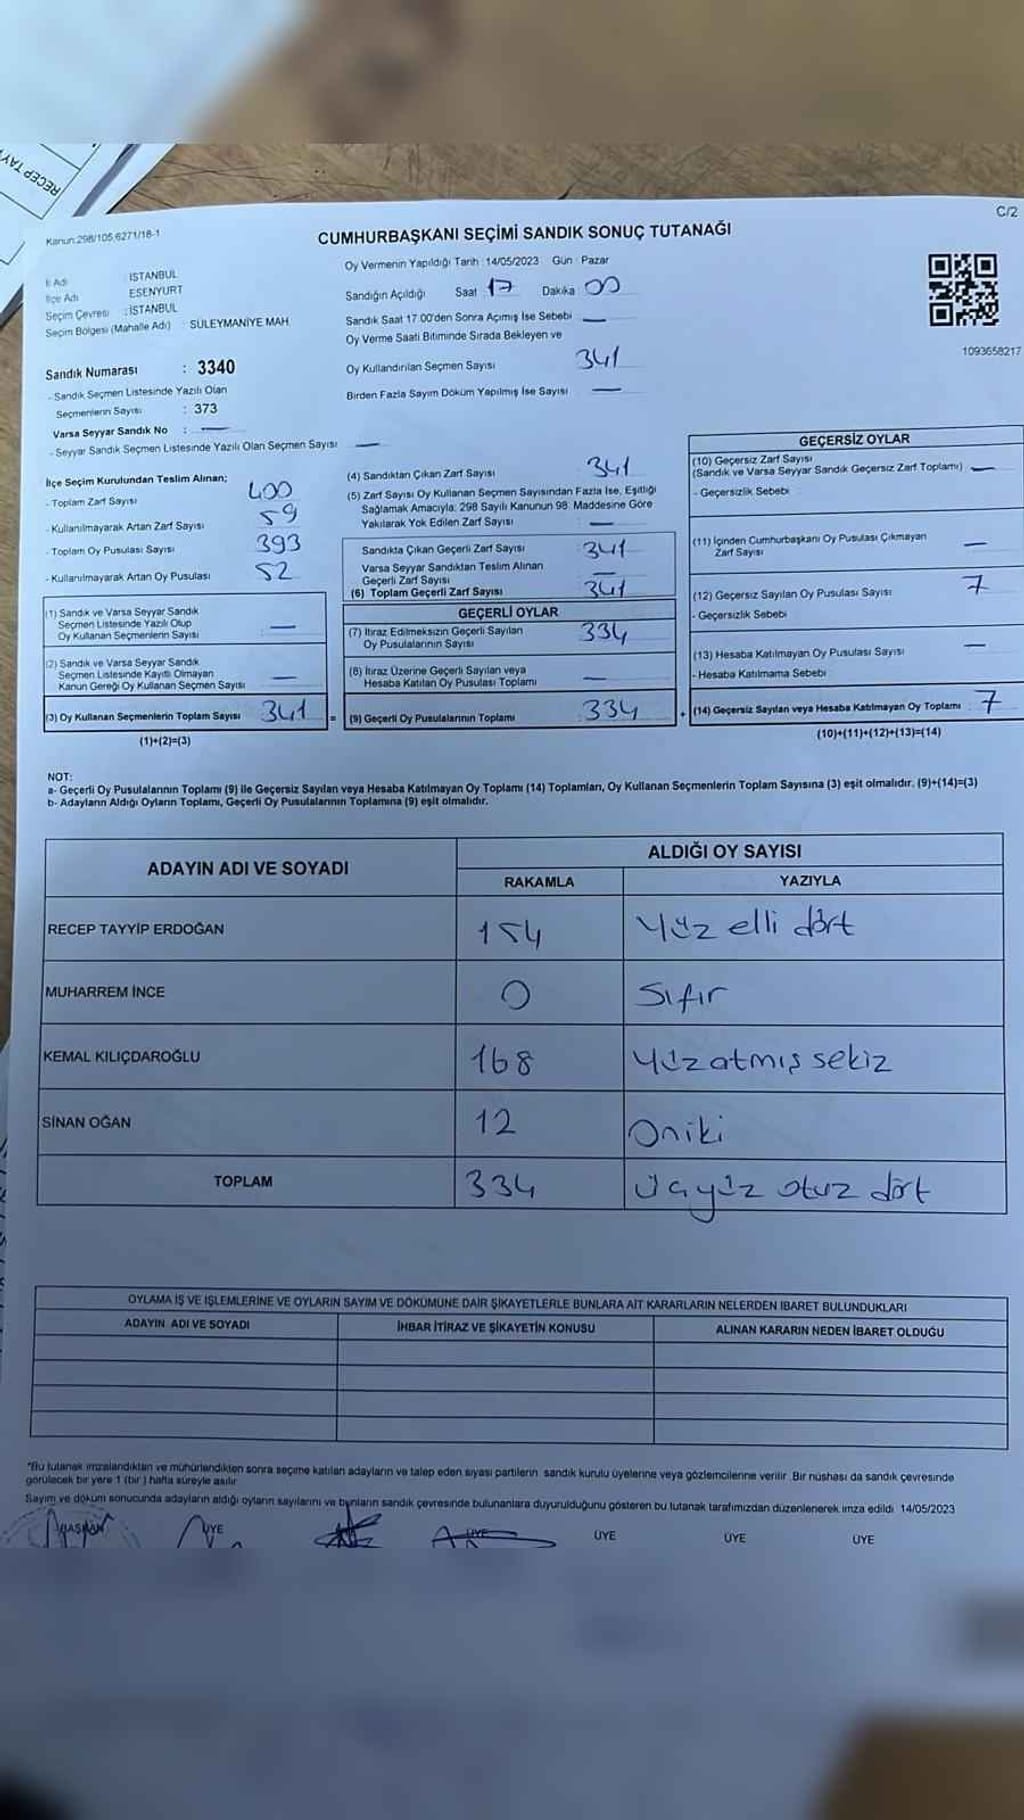 RECEP TAY
C/2
Kanun:298/105,6271/18-1
CUMHURBAŞKANI SEÇİMİ SANDIK SONUÇ TUTANAĞI
İl Adı : İSTANBUL
İlçe Adı : ESENYURT
Seçim Çevresi : İSTANBUL
Seçim Bölgesi (Mahalle Adı) : SÜLEYMANİYE MAH.
Sandık Numarası : 3340
- Sandık Seçmen Listesinde Yazılı Olan
Seçmenlerin Sayısı : 373
Varsa Seyyar Sandık No : —
- Seyyar Sandık Seçmen Listesinde Yazılı Olan Seçmen Sayısı —
Oy Vermenin Yapıldığı Tarih : 14/05/2023 Gün : Pazar
Sandığın Açıldığı Saat 17 Dakika 00
Sandık Saat 17.00'den Sonra Açımış İse Sebebi —
Oy Verme Saati Bitiminde Sırada Bekleyen ve
Oy Kullandırılan Seçmen Sayısı 341
Birden Fazla Sayım Döküm Yapılmış İse Sayısı —
1093658217
İlçe Seçim Kurulundan Teslim Alınan;
- Toplam Zarf Sayısı 400
- Kullanılmayarak Artan Zarf Sayısı 59
- Toplam Oy Pusulası Sayısı 393
- Kullanılmayarak Artan Oy Pusulası 52
(1) Sandık ve Varsa Seyyar Sandık
Seçmen Listesinde Yazılı Olup
Oy Kullanan Seçmenlerin Sayısı —
(2) Sandık ve Varsa Seyyar Sandık
Seçmen Listesinde Kayıtlı Olmayan
Kanun Gereği Oy Kullanan Seçmen Sayısı —
(3) Oy Kullanan Seçmenlerin Toplam Sayısı 341 =
(1)+(2)=(3)
(4) Sandıktan Çıkan Zarf Sayısı 341
(5) Zarf Sayısı Oy Kullanan Seçmen Sayısından Fazla İse, Eşitliği
Sağlamak Amacıyla; 298 Sayılı Kanunun 98. Maddesine Göre
Yakılarak Yok Edilen Zarf Sayısı —
Sandıkta Çıkan Geçerli Zarf Sayısı 341
Varsa Seyyar Sandıktan Teslim Alınan
Geçerli Zarf Sayısı —
(6) Toplam Geçerli Zarf Sayısı 341
GEÇERLİ OYLAR
(7) İtiraz Edilmeksizin Geçerli Sayılan
Oy Pusulalarının Sayısı 334
(8) İtiraz Üzerine Geçerli Sayılan veya
Hesaba Katılan Oy Pusulası Toplamı —
(9) Geçerli Oy Pusulalarının Toplamı 334 +
GEÇERSİZ OYLAR
(10) Geçersiz Zarf Sayısı
(Sandık ve Varsa Seyyar Sandık Geçersiz Zarf Toplamı) —
- Geçersizlik Sebebi
(11) İçinden Cumhurbaşkanı Oy Pusulası Çıkmayan
Zarf Sayısı —
(12) Geçersiz Sayılan Oy Pusulası Sayısı 7
- Geçersizlik Sebebi
(13) Hesaba Katılmayan Oy Pusulası Sayısı —
- Hesaba Katılmama Sebebi
(14) Geçersiz Sayılan veya Hesaba Katılmayan Oy Toplamı : 7
(10)+(11)+(12)+(13)=(14)
NOT:
a- Geçerli Oy Pusulalarının Toplamı (9) ile Geçersiz Sayılan veya Hesaba Katılmayan Oy Toplamı (14) Toplamları, Oy Kullanan Seçmenlerin Toplam Sayısına (3) eşit olmalıdır. (9)+(14)=(3)
b- Adayların Aldığı Oyların Toplamı, Geçerli Oy Pusulalarının Toplamına (9) eşit olmalıdır.
ADAYIN ADI VE SOYADI
ALDIĞI OY SAYISI
RAKAMLA YAZIYLA
RECEP TAYYİP ERDOĞAN 154 Yüz elli dört
MUHARREM İNCE 0 Sıfır
KEMAL KILIÇDAROĞLU 168 Yüz atmış sekiz
SİNAN OĞAN 12 Oniki
TOPLAM 334 Üçyüz otuz dört
OYLAMA İŞ VE İŞLEMLERİNE VE OYLARIN SAYIM VE DÖKÜMÜNE DAİR ŞİKAYETLERLE BUNLARA AİT KARARLARIN NELERDEN İBARET BULUNDUKLARI
ADAYIN ADI VE SOYADI İHBAR İTİRAZ VE ŞİKAYETİN KONUSU ALINAN KARARIN NEDEN İBARET OLDUĞU
*Bu tutanak imzalandıktan ve mühürlendikten sonra seçime katılan adayların ve talep eden siyasi partilerin sandık kurulu üyelerine veya gözlemcilerine verilir. Bir nüshası da sandık çevresinde
görülecek bir yere 1 (bir ) hafta süreyle asılır.
Sayım ve döküm sonucunda adayların aldığı oyların sayılarını ve bunların sandık çevresinde bulunanlara duyurulduğunu gösteren bu tutanak tarafımızdan düzenlenerek imza edildi. 14/05/2023
BAŞKAN ÜYE ÜYE ÜYE ÜYE ÜYE